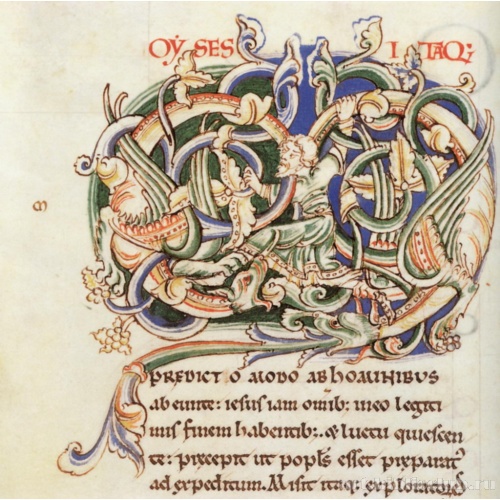 m
OẎSES ITAQ;
PREDICTO MODO AB HOMINIBUS
abeunte: iesus iam omīb; in eo legiti
mis finem habentib;. & luctu quiescen
te: precepit ut popl̄s esset preparat᾽
ad expeditum. Misit itaq; exploratores